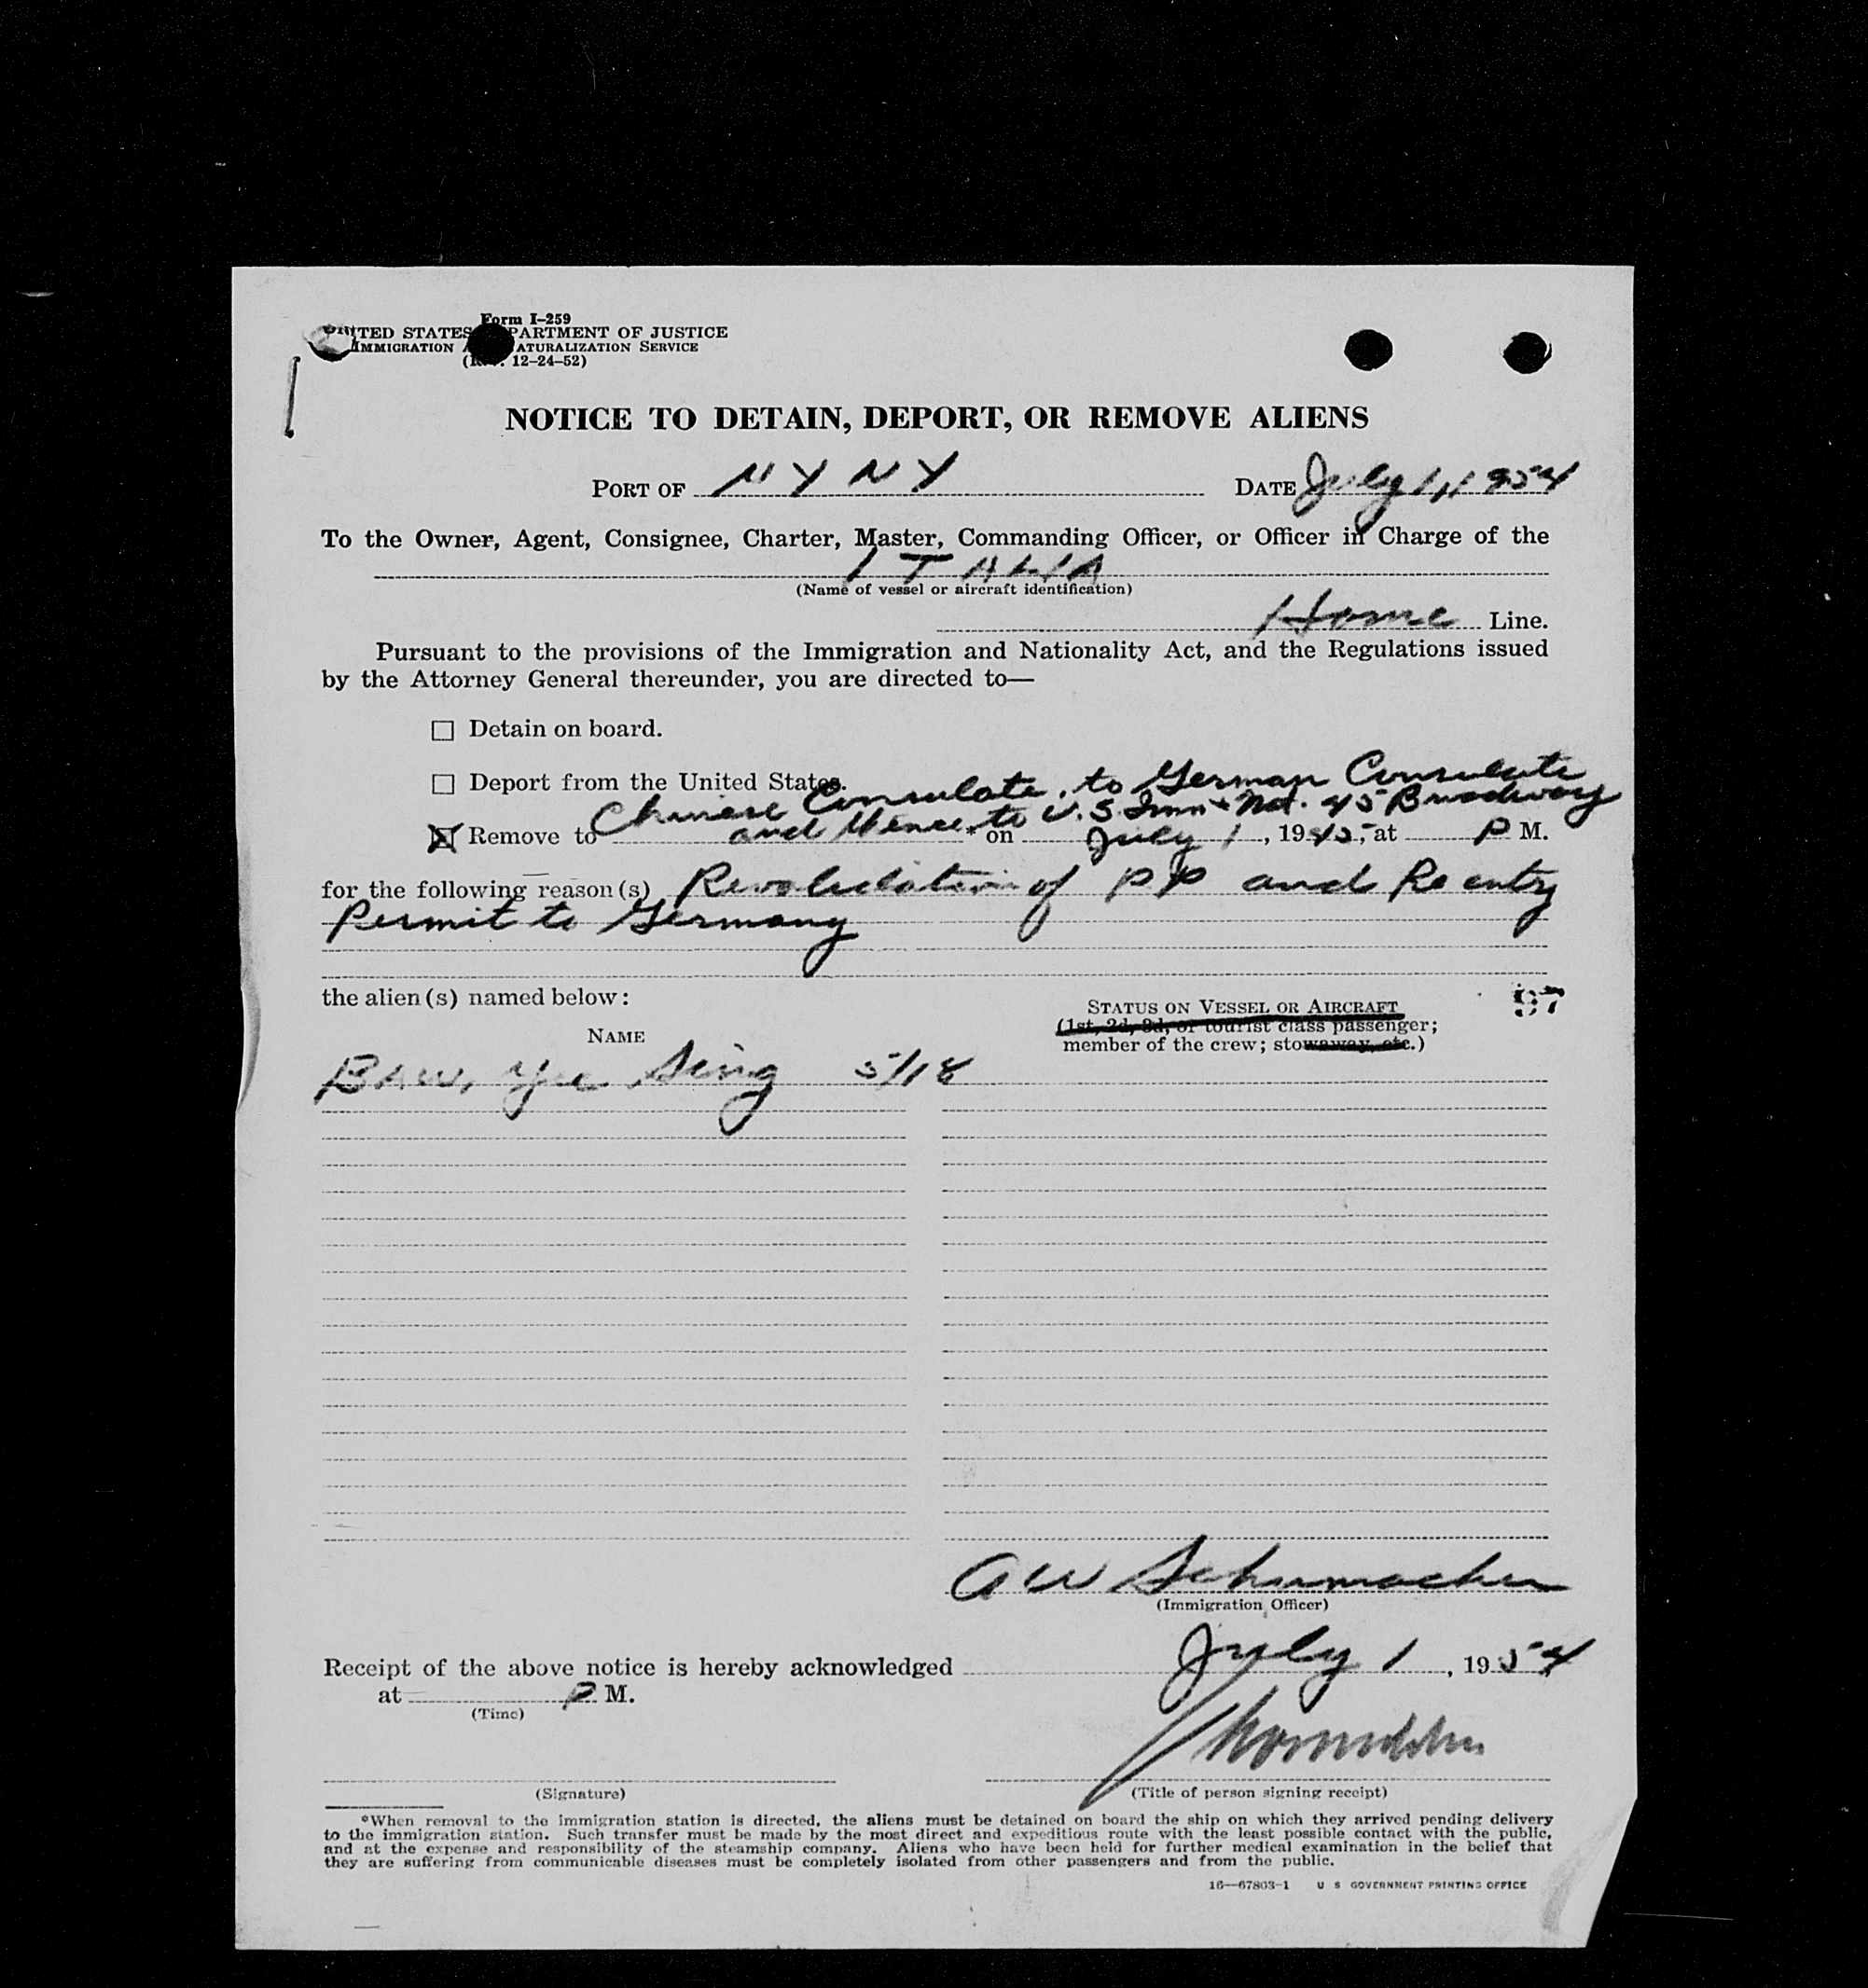 Form I–259
UNITED STATES DEPARTMENT OF JUSTICE
IMMIGRATION NATURALIZATION SERVICE
12–24–52)
NOTICE TO DETAIN, DEPORT, OR REMOVE ALIENS
PORT OF N Y N Y DATE July 1, 1954
To the Owner, Agent, Consignee, Charter, Master, Commanding Officer, or Officer in Charge of the
ITALIA
(Name of vessel or aircraft identification)
Home Line.
Pursuant to the provisions of the Immigration and Nationality Act, and the Regulations issued
by the Attorney General thereunder, you are directed to—
☐ Detain on board.
☐ Deport from the United States.
Chinese Consulate, to German Consulate
and thence to U.S. Imm & Nat. 45 Broadway
☒ Remove to * on July 1, 19 at P M.
for the following reason(s) Revalidation of PP and Re entry
Permit to Germany
the alien(s) named below:
97
NAME
STATUS ON VESSEL OR AIRCRAFT
(1st, 2d, 3d, or tourist class passenger;
member of the crew; stowaway, etc.)
BAW, Yee Sing 5/18
A W Schumacher
(Immigration Officer)
Receipt of the above notice is hereby acknowledged July 1, 1954
at P. M.
(Time)
(Signature)
(Title of person signing receipt)
*When removal to the immigration station is directed, the aliens must be detained on board the ship on which they arrived pending delivery
to the immigration station. Such transfer must be made by the most direct and expeditious route with the least possible contact with the public,
and at the expense and responsibility of the steamship company. Aliens who have been held for further medical examination in the belief that
they are suffering from communicable diseases must be completely isolated from other passengers and from the public.
16—67803-1 U S GOVERNMENT PRINTING OFFICE